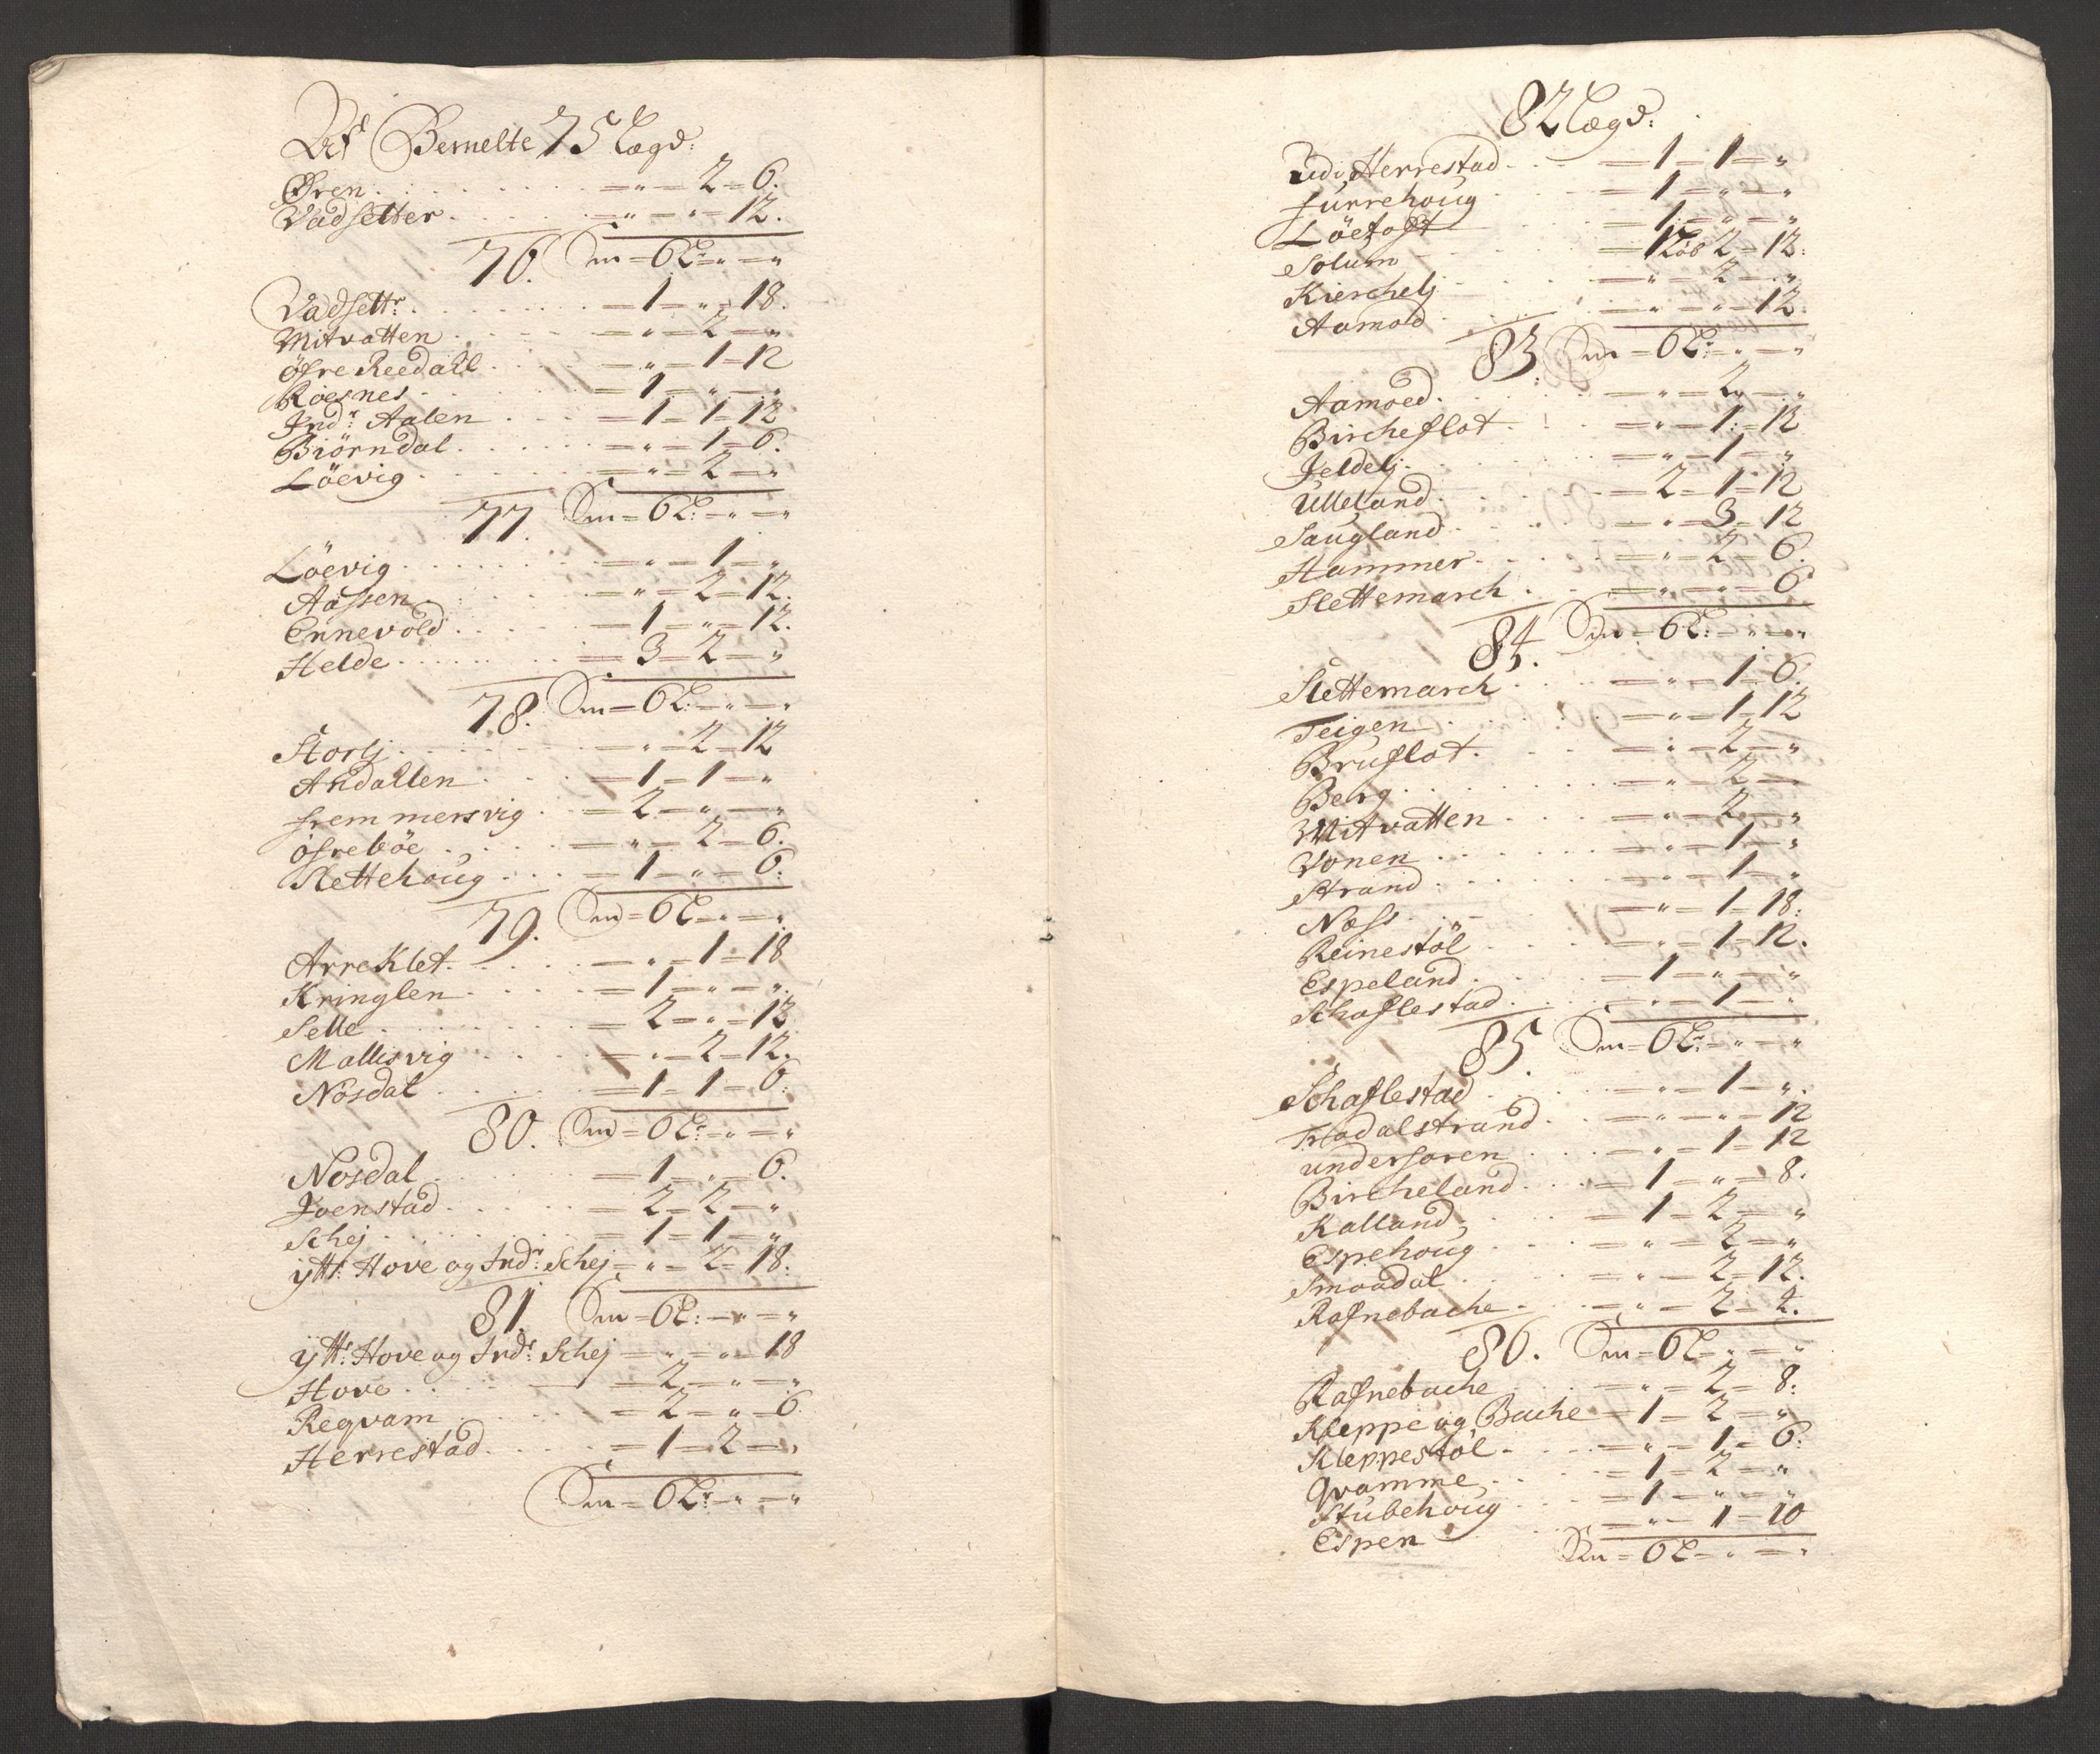 Af Bemelte 75 Lægd:
Øren . . . . = " = 2 = 6.
Vadsetter . . . = " = " = 12.
76. Sm = 6 L: = " = "
Vadsettr: . . . = 1 = " = 18.
Mitvatten . . . = " = 2 = "
öfre Reedahl . . . = " = 1 = 12
Röesnes . . . = 1 = " = "
Indr: Aalen . . . = 1 = 1 = 12
Biörndal . . . = " = 1 = 6.
Löevig . . . = " = 2 = "
77. Sm = 6 L: = " = "
Löevig . . . = " = 1 = "
Aassen . . . = " = 2 = 12.
Ennevold . . . = 1 = " = 12.
Helde . . . = 3 = 2 = "
78. Sm = 6 L: = " = "
Storlj . . . = " = 2 = 12
Andallen . . . = 1 = 1 = "
fremmersvig . . = 2 = " = "
öfreböe . . . = " = 2 = 6.
Slettehoug . . . = 1 = " = 6.
79. Sm = 6 L = " = "
Arreklet . . . = " = 1 = 18
Kringlen . . . = 1 = " = "
Selle . . . = 2 = " = 12
Mallisvig . . . = " = 2 = 12.
Nosdal . . . = 1 = 1 = 6:
80. Sm = 6 L: = " = "
Nosdal . . . = 1 = " = 6.
Joenstad . . . = 2 = 2 = "
Schej . . . = 1 = 1 = "
ÿttr: Hove og Indr: Schej = " = 2 = 18:
81. Sm = 6 L: = " = "
ÿttr: Hove og Indr: Schej = " = " = 18
Hove . . . = 2 = " = "
Reqvam . . . = 2 = " = 6
Herrestad . . . = 1 = 2 = "
Sm = 6 L: = " = "
82 Lægd:
Udi Herrestad . . . = 1 = 1 = "
furrehoug . . . = 1 = " = "
Löetoft . . . = 1 = " = "
Solum . . . = 1 Löb 2 = 12:
Kierchelj . . . = " = 2 = "
Aamod . . . = " = " = 12
83. Sm = 6 L: = " = "
Aamoed . . . = " = 2 = "
Bircheflot . . . = " = 1 = 12
Jeldelj . . . = " = 1 = "
Ulleland . . . = 2 = 1 = 12
Saugland . . . = " = 3 = 12
Hammer . . . = " = 2 = 6.
Slettemarch . . . = " = " = 6
84. Sm = 6 L: = " = "
Slettemarch . . . = " = 1 = 6.
Teigen . . . = " = 1 = 12
Bruflot . . . = " = 2 = "
Berg . . . = " = 2 =
Mitvatten . . . = " = 2 = "
Vonen . . . = " = 1 = "
Strand . . . = " = 1 = "
Næss . . . = " = 1 = 18:
Reinestöl . . . = " = 1 = 12.
Espeland . . . = 1 = " = "
Schaflestad . . . = " = 1 = "
85 Sm = 6 L: = " = "
Schaflestad . . . = " = 1 = ".
Hadalstrand . . . = " = " = 12
undersoren . . . = " = 1 = 12
Bircheland . . . = 1 = " = 8.
Kalland . . . = 1 = 2 = "
Espehoug . . . = " = 2 = "
Smaadal . . . = " = 2 = 12.
Rafnebache . . . = " = 2 = 2.
86. Sm = 6 L = " = "
Rafnebache . . . = " = 2 = 8:
Kleppe og Bache = 1 = 2 = "
Kleppestöl . . . = " = 1 = 6:
Qvamme . . . = 1 = 2 = "
Stubehoug . . . = 1 = " = "
Espen . . . = " = 1 = 10
Sm = 6 L = " = "